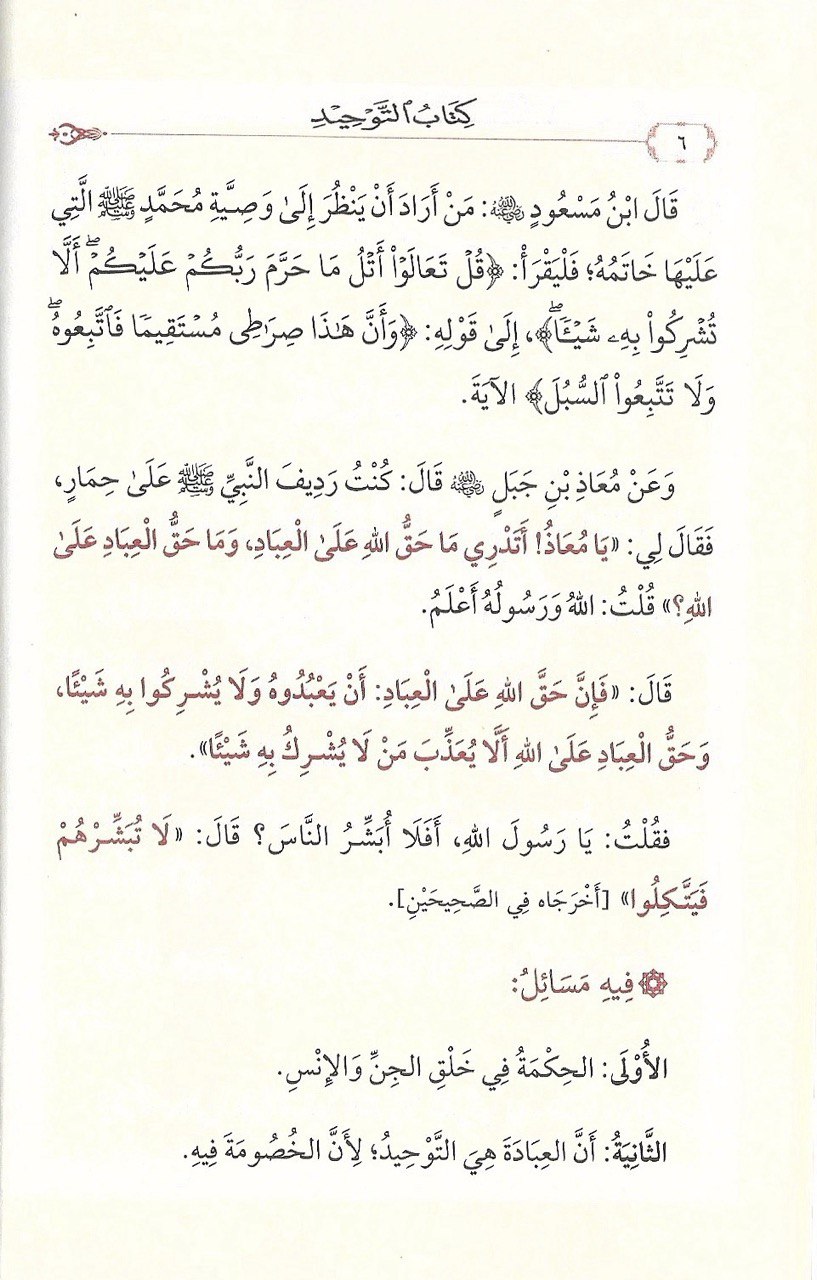 كِتَابُ ٱلتَّوْحِيْدِ
٦
قَالَ ابْنُ مَسْعُودٍ رضي الله عنه: مَنْ أَرَادَ أَنْ يَنْظُرَ إِلَىٰ وَصِيَّةِ مُحَمَّدٍ ﷺ الَّتِي
عَلَيْهَا خَاتَمُهُ؛ فَلْيَقْرَأْ: ﴿قُلْ تَعَالَوْا۟ أَتْلُ مَا حَرَّمَ رَبُّكُمْ عَلَيْكُمْ ۖ أَلَّا
تُشْرِكُوا۟ بِهِۦ شَيْـًٔا ۖ﴾، إِلَىٰ قَوْلِهِ: ﴿وَأَنَّ هَـٰذَا صِرَٰطِى مُسْتَقِيمًا فَٱتَّبِعُوهُ ۖ
وَلَا تَتَّبِعُوا۟ ٱلسُّبُلَ﴾ الآيَةَ.
وَعَنْ مُعَاذِ بْنِ جَبَلٍ رضي الله عنه قَالَ: كُنْتُ رَدِيفَ النَّبِيِّ ﷺ عَلَىٰ حِمَارٍ،
فَقَالَ لِي: «يَا مُعَاذُ! أَتَدْرِي مَا حَقُّ اللهِ عَلَىٰ الْعِبَادِ، وَمَا حَقُّ الْعِبَادِ عَلَىٰ
اللهِ؟» قُلْتُ: اللهُ وَرَسُولُهُ أَعْلَمُ.
قَالَ: «فَإِنَّ حَقَّ اللهِ عَلَىٰ الْعِبَادِ: أَنْ يَعْبُدُوهُ وَلَا يُشْرِكُوا بِهِ شَيْئًا،
وَحَقُّ الْعِبَادِ عَلَىٰ اللهِ أَلَّا يُعَذِّبَ مَنْ لَا يُشْرِكُ بِهِ شَيْئًا».
فَقُلْتُ: يَا رَسُولَ اللهِ، أَفَلَا أُبَشِّرُ النَّاسَ؟ قَالَ: «لَا تُبَشِّرْهُمْ
فَيَتَّكِلُوا» [أَخْرَجَاه فِي الصَّحِيحَيْنِ].
فِيهِ مَسَائِلُ:
الأُوْلَى: الحِكْمَةُ فِي خَلْقِ الجِنِّ وَالإِنْسِ.
الثَّانِيَةُ: أَنَّ العِبَادَةَ هِيَ التَّوْحِيدُ؛ لِأَنَّ الخُصُومَةَ فِيهِ.